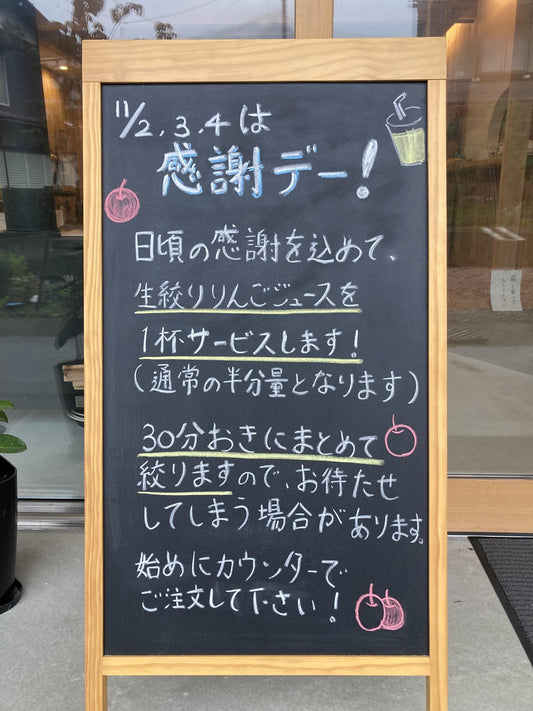 11/2,3,4は
感謝デー!
日頃の感謝を込めて、
生絞りりんごジュースを
1杯サービスします!
(通常の半分量となります)
30分おきにまとめて
絞りますので、お待たせ
してしまう場合があります。
始めにカウンターで
ご注文して下さい!